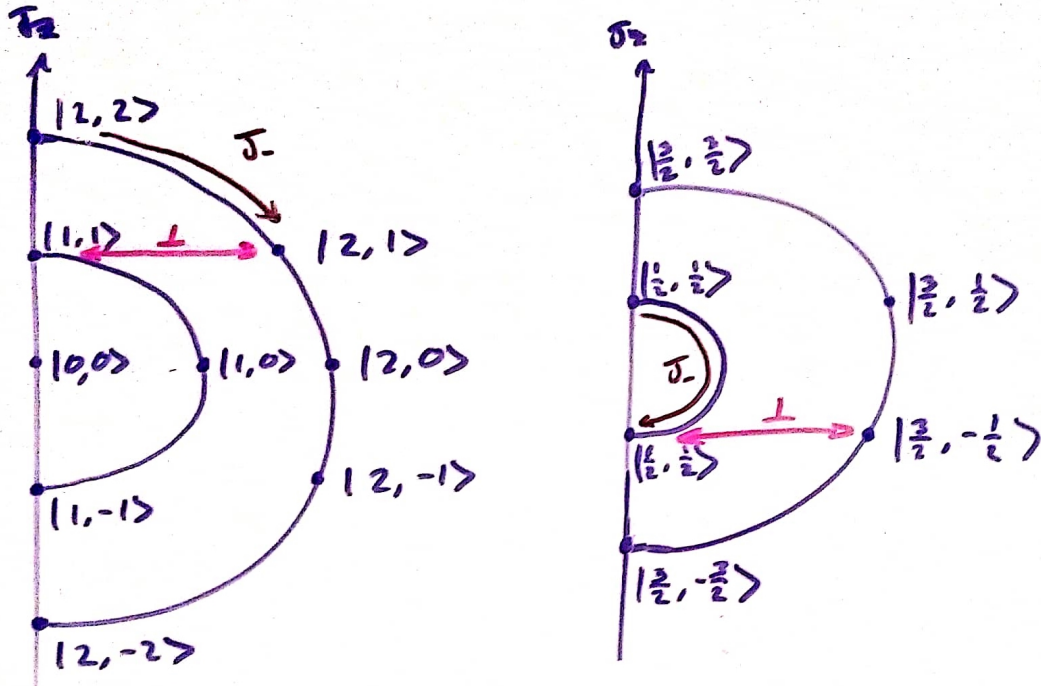 J_z
|2,2>
J_-
|1,1>
⊥
|2,1>
|0,0>
|1,0>
|2,0>
|2,-1>
|1,-1>
|2,-2>
J_z
|3/2,3/2>
|1/2,1/2>
|3/2,1/2>
J_-
⊥
|3/2,-1/2>
|1/2,1/2>
|3/2,-3/2>